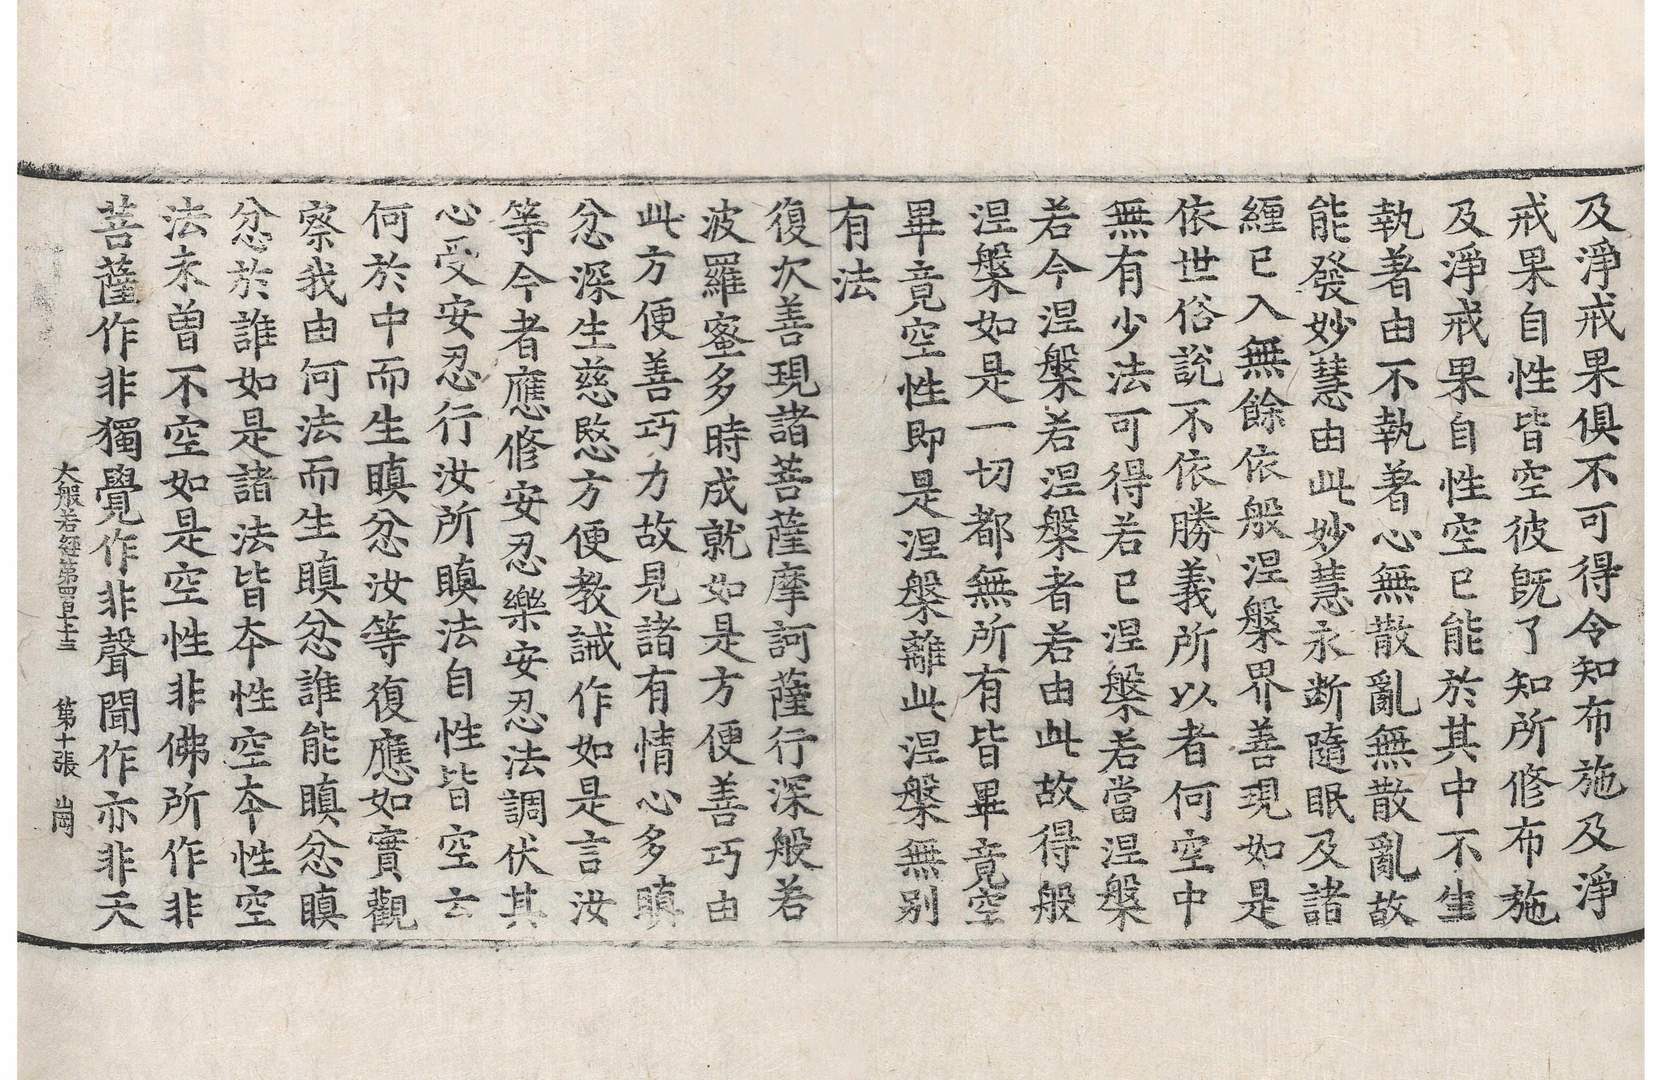 及淨戒果俱不可得令知布施及淨
戒果自性皆空彼旣了知所修布施
及淨戒果自性空已能於其中不生
執著由不執著心無散亂無散亂故
能發妙慧由此妙慧永断隨眠及諸
纏已入無餘依般涅槃界善現如是
依世俗說不依勝義所以者何空中
無有少法可得若已涅槃若當涅槃
若今涅槃若涅槃者若由此故得般
涅槃如是一切都無所有皆畢竟空
畢竟空性即是涅槃離此涅槃無別
有法
復次善現諸菩薩摩訶薩行深般若
波羅蜜多時成就如是方便善巧由
此方便善巧力故見諸有情心多瞋
忿深生慈愍方便教誡作如是言汝
等今者應修安忍樂安忍法調伏其
心受安忍行汝所瞋法自性皆空云
何於中而生瞋忿汝等復應如實觀
察我由何法而生瞋忿誰能瞋忿瞋
忿於誰如是諸法皆夲性空夲性空
法未曾不空如是空性非佛所作非
菩薩作非獨覺作非聲聞作亦非天
大般若經第四百七十三 第十張 崗